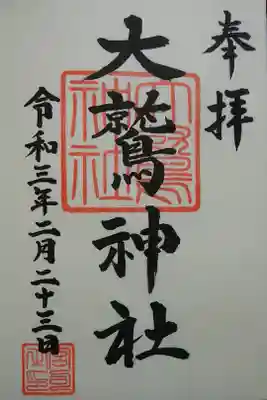 奉拝
大鷲神社
令和三年二月二十三日